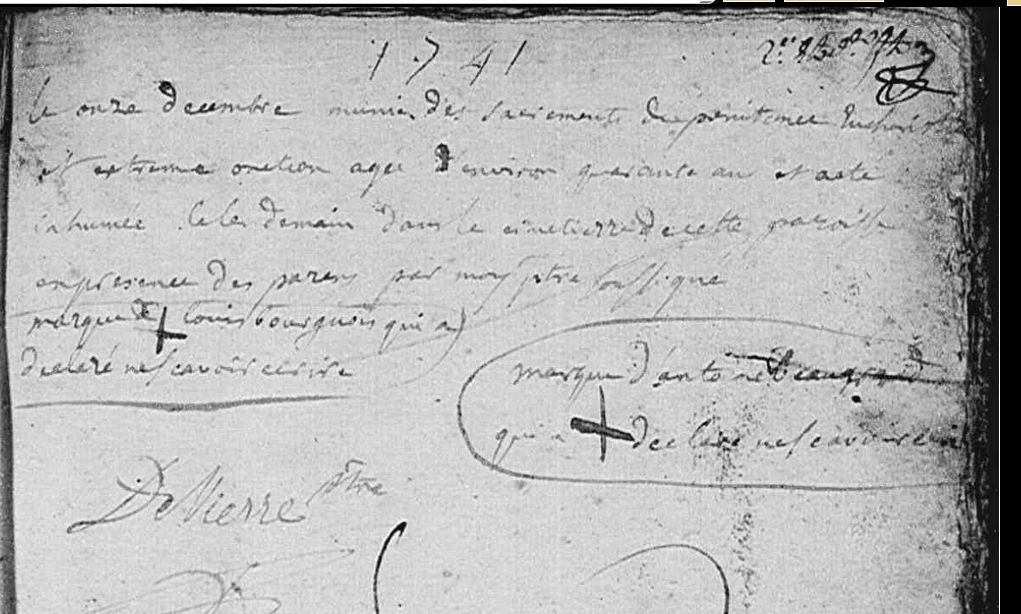 1741
le onze decembre munie des sacrements de penitence Eucharist
et extreme onction agée d'environ quarante an et aété
inhumée le lendemain dans le cimetierre de cette paroisse
en presence des parens par moy ptre soussigné
marque de louis bourguois qui a
declaré ne scavoir ecrire
marque d'antoine Beaugrand
qui a declaré ne scavoir ecrire
De Vierre ptre